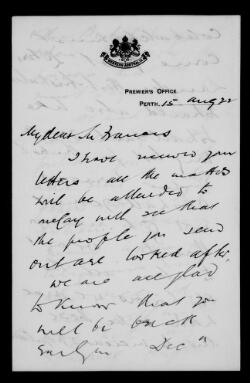 PREMIER'S OFFICE,
PERTH, 15 Aug 22
My dear Mr Francis
I have received your
letters all the matters
will be attended to
will see that
the people you send
out are looked after.
we are all glad
to know that you
will be back
early in Dec